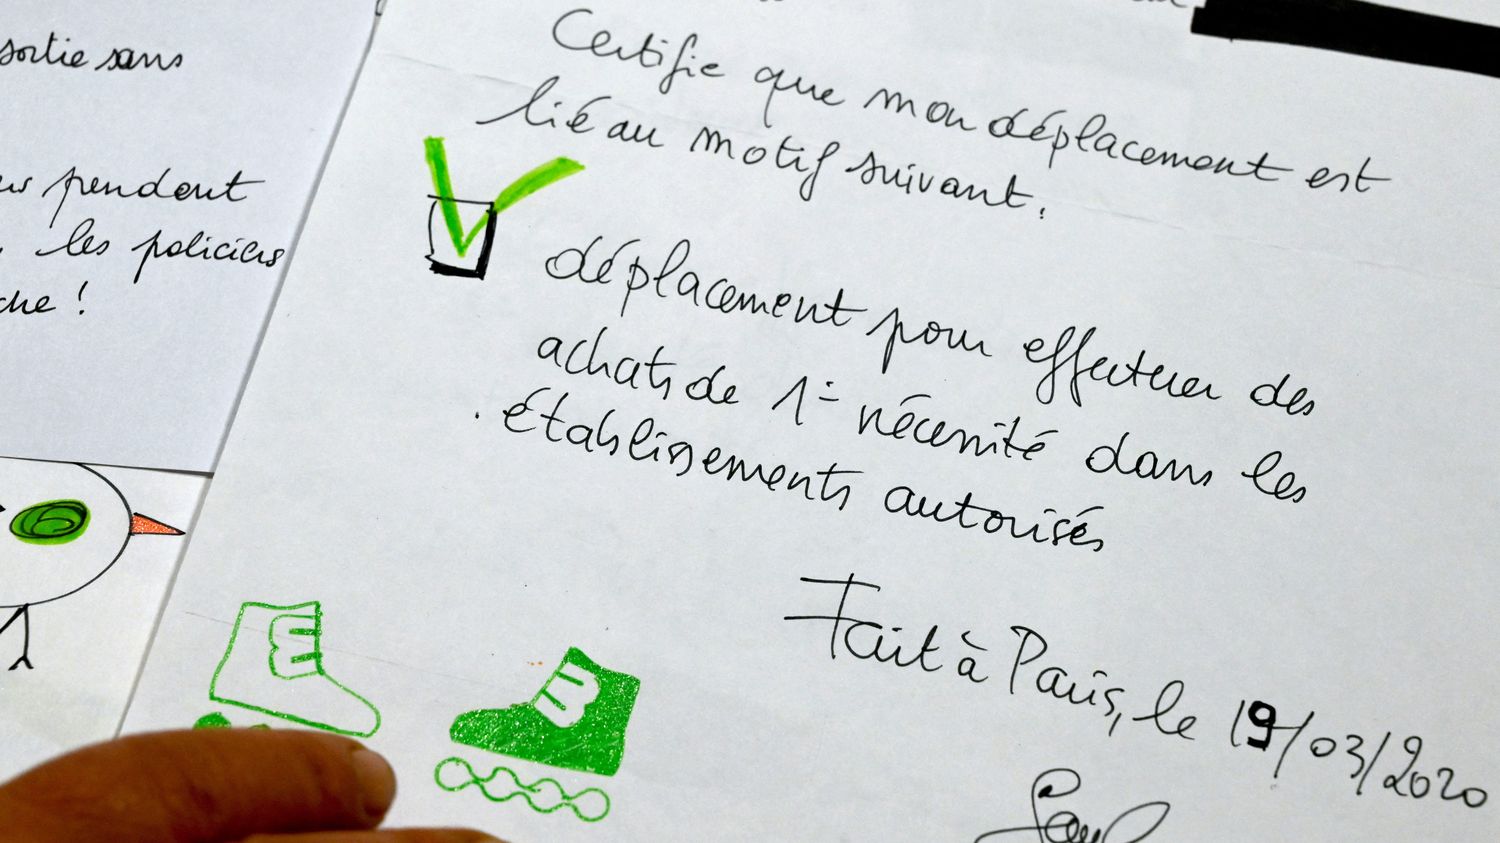 sortie sans
pendant
les policiers
!
Certifie que mon déplacement est
lié au motif suivant.
déplacement pour effectuer des
achats de 1= nécessité dans les
établissements autorisés
Fait à Paris, le 19/03/2020